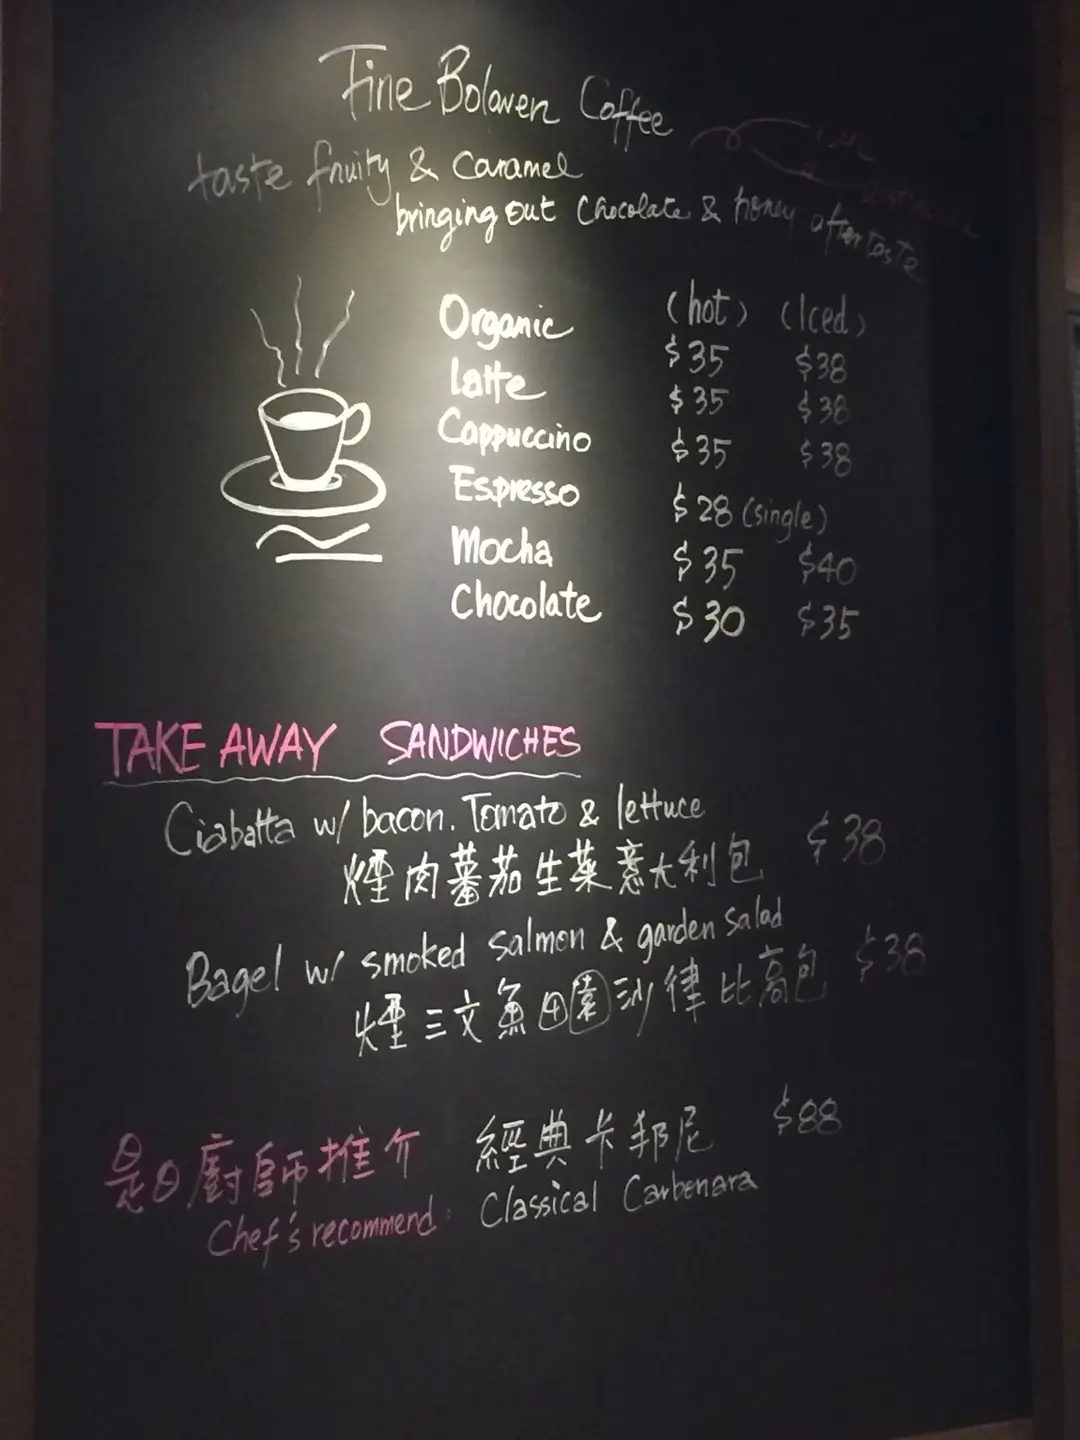 Fine Bolaven Coffee
taste fruity & Caramel
bringing out Chocolate & honey aftertaste
(hot) (Iced)
Organic $35 $38
latte $35 $38
Cappuccino $35 $38
Espresso $28 (single)
Mocha $35 $40
Chocolate $30 $35
TAKE AWAY SANDWICHES
Ciabatta w/ bacon. Tomato & lettuce
煙肉蕃茄生菜意大利包 $38
Bagel w/ smoked salmon & garden salad
煙三文魚田園沙律比高包 $38
是日廚師推介 經典卡邦尼 $88
Chef's recommend: Classical Carbenara